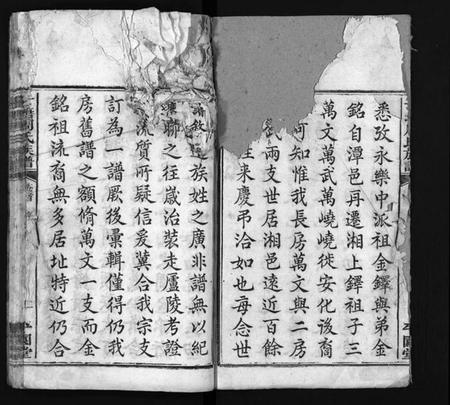 悉攷永樂中派祖金鐸與弟金
銘自潭邑再遷湘上鐸祖子三
萬文萬武萬嶢嶢徙安化後裔
可知惟我長房萬文與二房
武兩支世居湘邑遠近百餘
往來慶弔洽如也每念世
遠族姓之廣非譜無以紀
聯之往歲治裝走廬陵考證
流質所疑信爰冀合我宗支
訂為一譜厥後彙輯僅得仍我
房舊譜之額脩萬文一支而金
銘祖流裔無多居址特近仍合